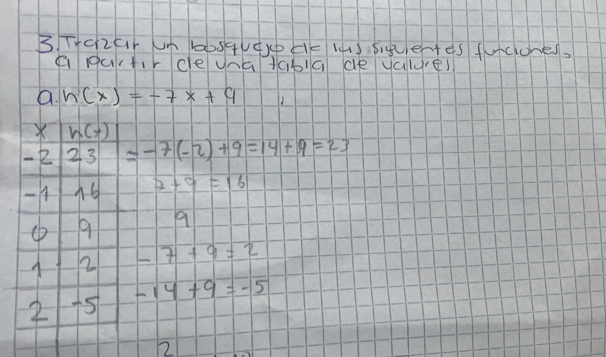 3. Trazar un bosquejo de las siguientes funciones,
a partir de una tabla de valores.
a. h(x) = -7x + 9
x h(x)
-2 23 = -7(-2) + 9 = 14 + 9 = 23
-1 16 7 + 9 = 16
0 9 9
1 2 - 7 + 9 = 2
2 -5 -14 + 9 = -5
2